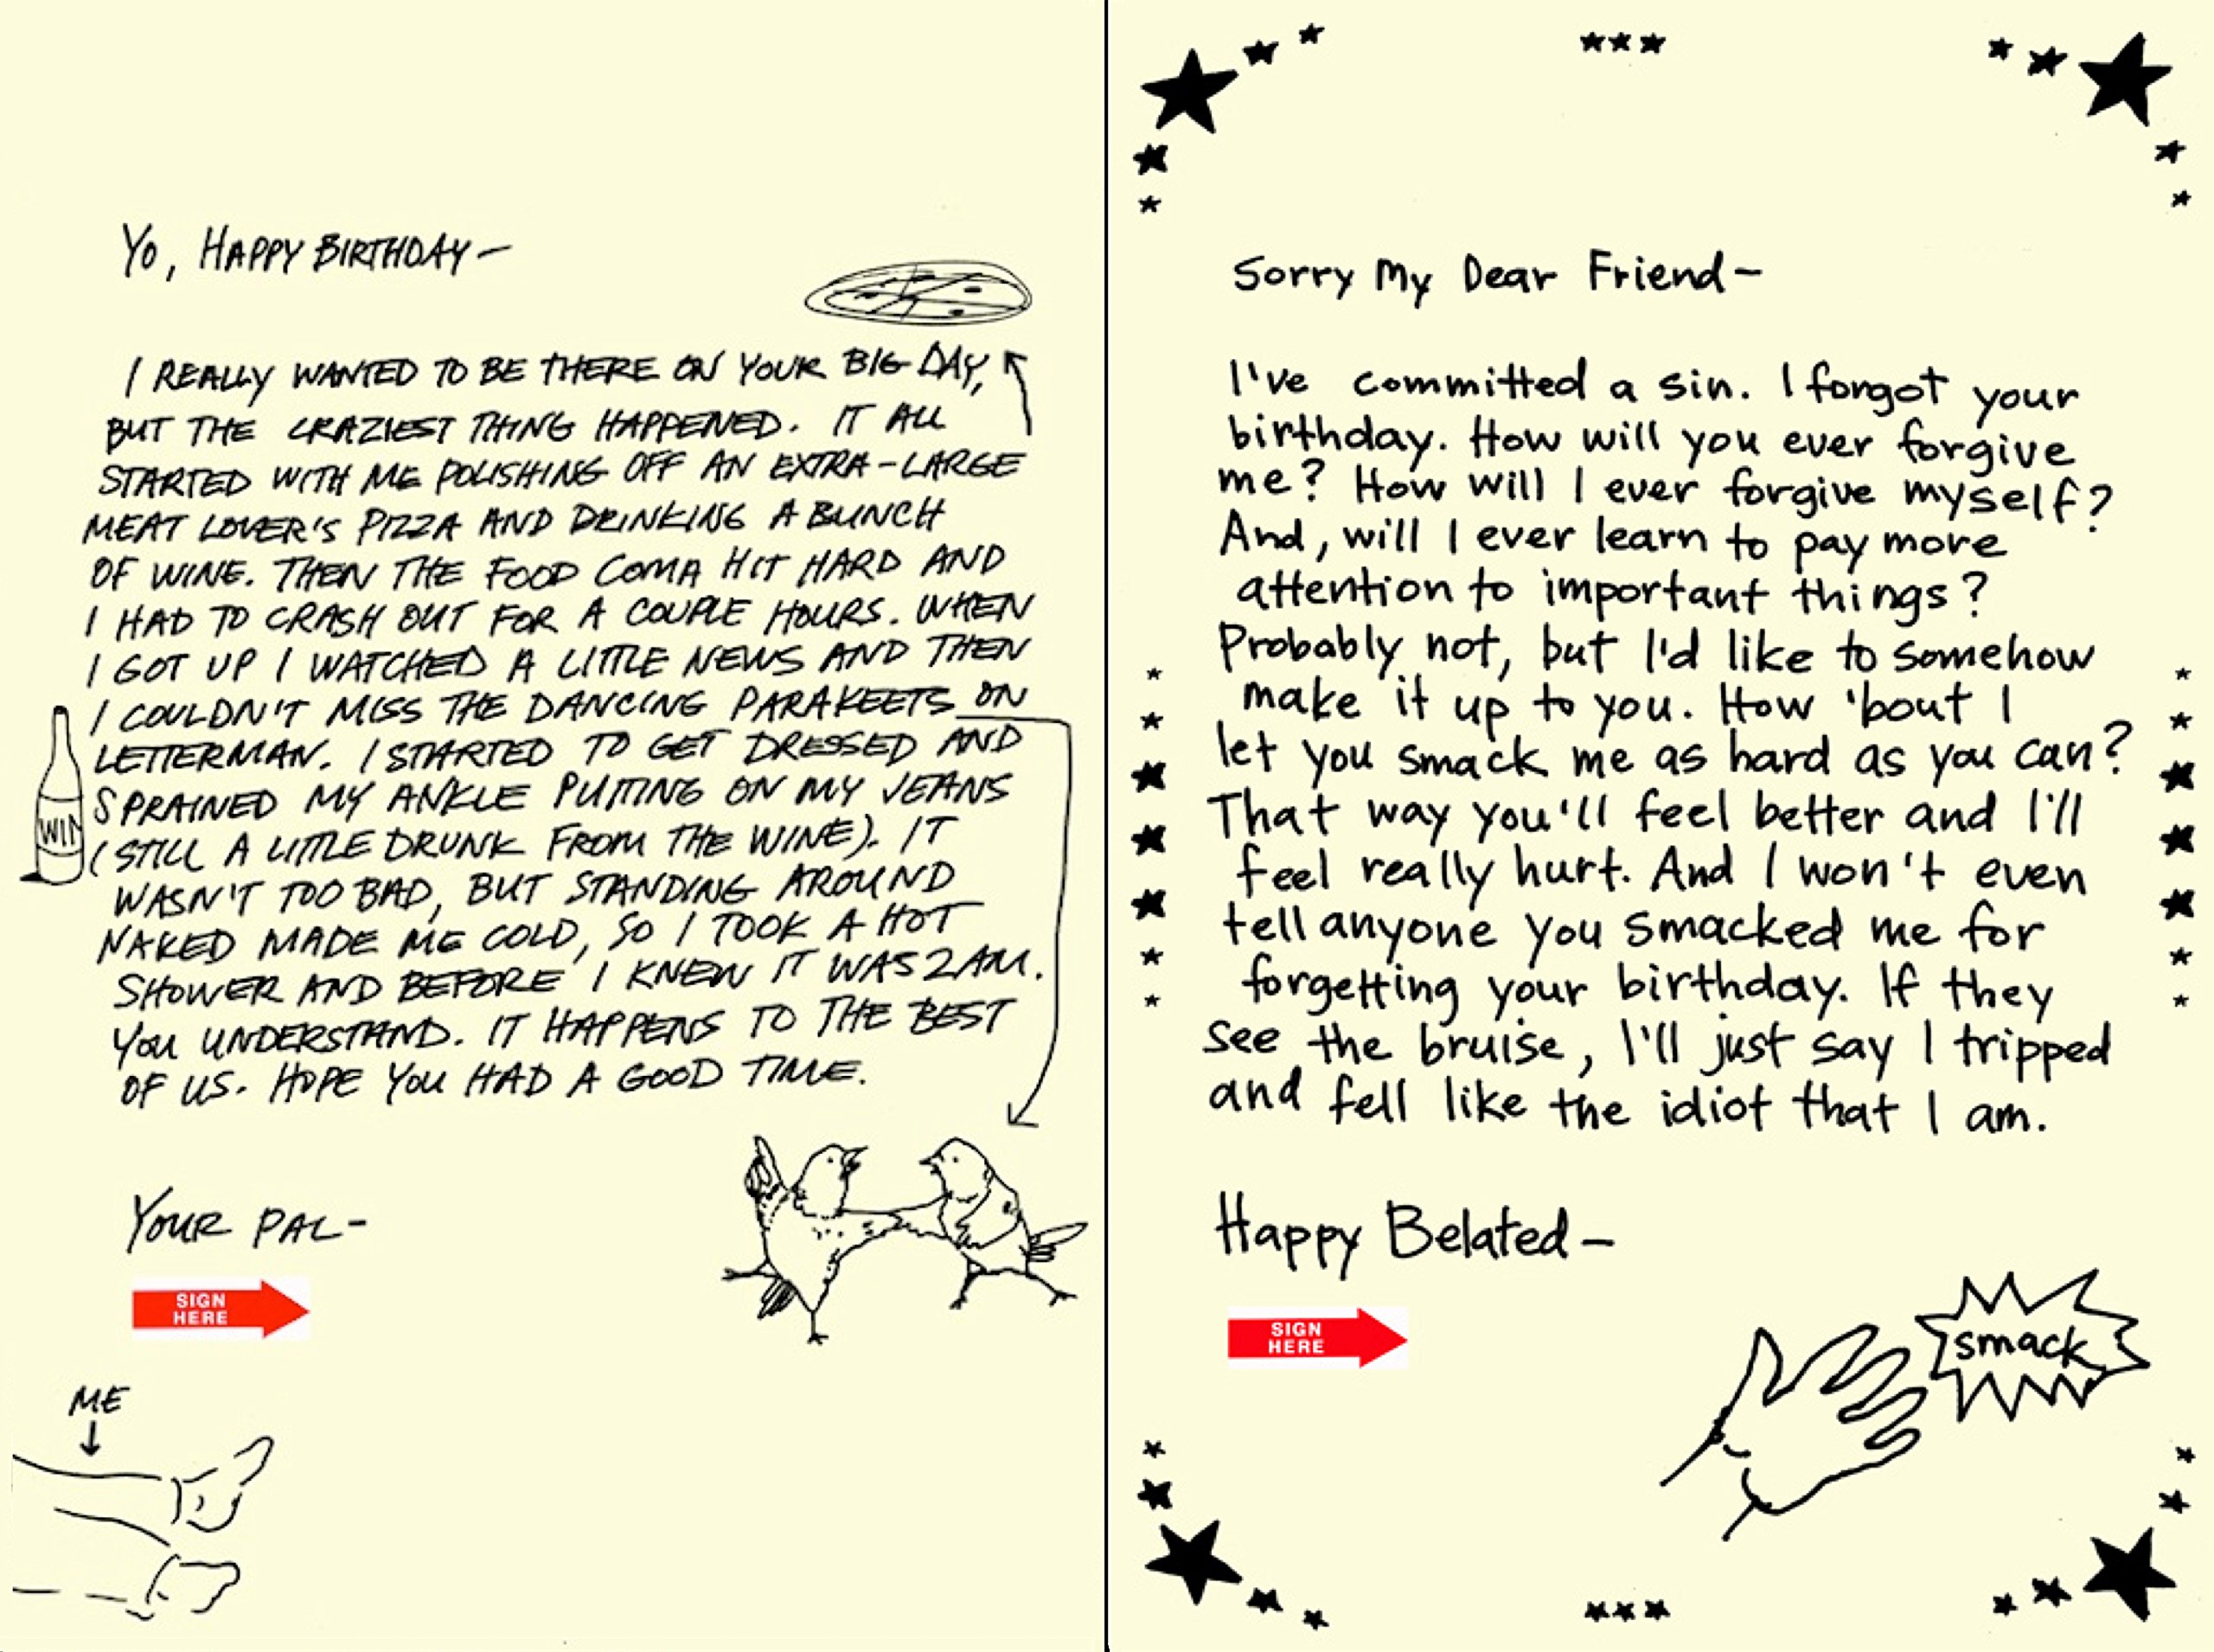 YO, HAPPY BIRTHDAY—
I REALLY WANTED TO BE THERE ON YOUR BIG DAY,
BUT THE CRAZIEST THING HAPPENED. IT ALL
STARTED WITH ME POLISHING OFF AN EXTRA-LARGE
MEAT LOVER'S PIZZA AND DRINKING A BUNCH
OF WINE. THEN THE FOOD COMA HIT HARD AND
I HAD TO CRASH OUT FOR A COUPLE HOURS. WHEN
I GOT UP I WATCHED A LITTLE NEWS AND THEN
I COULDN'T MISS THE DANCING PARAKEETS ON
LETTERMAN. I STARTED TO GET DRESSED AND
SPRAINED MY ANKLE PUTTING ON MY JEANS
(STILL A LITTLE DRUNK FROM THE WINE). IT
WASN'T TOO BAD, BUT STANDING AROUND
NAKED MADE ME COLD, SO I TOOK A HOT
SHOWER AND BEFORE I KNEW IT WAS 2AM.
YOU UNDERSTAND. IT HAPPENS TO THE BEST
OF US. HOPE YOU HAD A GOOD TIME.
WIN
YOUR PAL—
SIGN
HERE
ME
Sorry My Dear Friend—
I've committed a sin. I forgot your
birthday. How will you ever forgive
me? How will I ever forgive myself?
And, will I ever learn to pay more
attention to important things?
Probably not, but I'd like to somehow
make it up to you. How 'bout I
let you smack me as hard as you can?
That way you'll feel better and I'll
feel really hurt. And I won't even
tell anyone you smacked me for
forgetting your birthday. If they
see the bruise, I'll just say I tripped
and fell like the idiot that I am.
Happy Belated—
SIGN
HERE
smack